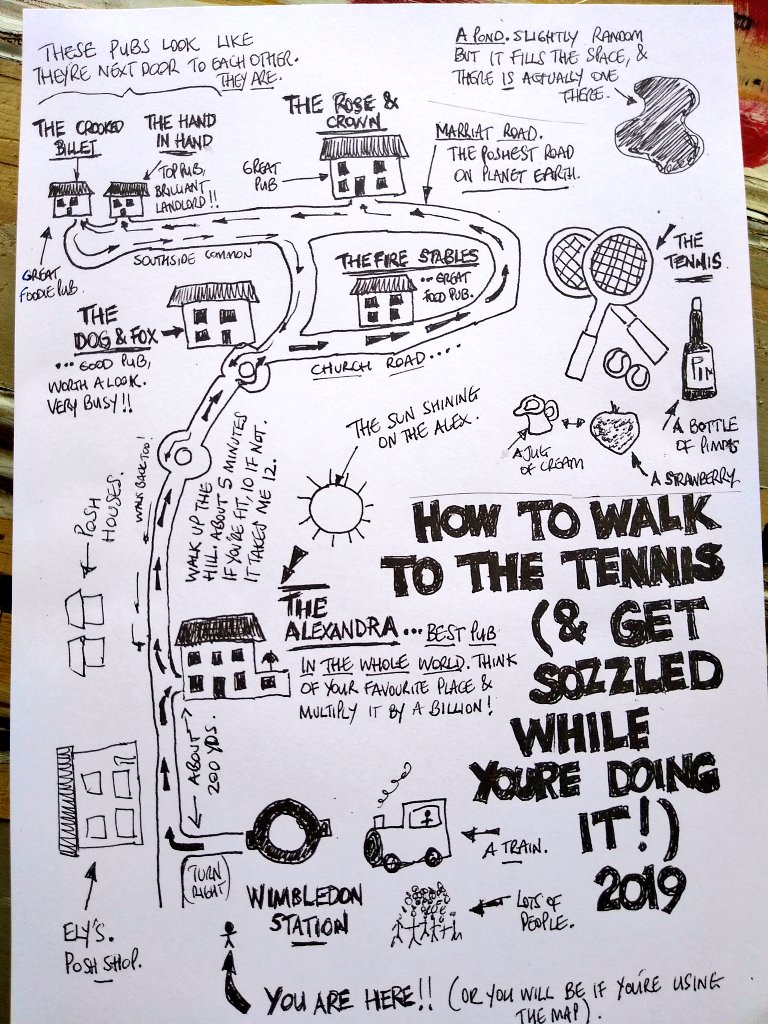 THESE PUBS LOOK LIKE
THEY'RE NEXT DOOR TO EACH OTHER.
THEY ARE.
A POND. SLIGHTLY RANDOM
BUT IT FILLS THE SPACE, &
THERE IS ACTUALLY ONE
THERE.
THE CROOKED
BILLET
THE HAND
IN HAND
TOP PUB,
BRILLIANT
LANDLORD!!
THE ROSE &
CROWN
GREAT
PUB
MARRIAT ROAD.
THE POSHEST ROAD
ON PLANET EARTH.
GREAT
FOODIE PUB.
SOUTHSIDE COMMON
THE FIRE STABLES
... GREAT
FOOD PUB.
THE
TENNIS.
THE
DOG & FOX
... GOOD PUB,
WORTH A LOOK.
VERY BUSY!!
CHURCH ROAD ....
PIM
A BOTTLE
OF PIMMS
A JUG
OF CREAM
A STRAWBERRY
THE SUN SHINING
ON THE ALEX.
WALK BACK TOO!
POSH
HOUSES.
WALK UP THE
HILL. ABOUT 5 MINUTES
IF YOU'RE FIT, 10 IF NOT.
IT TAKES ME 12.
HOW TO WALK
TO THE TENNIS
(& GET
SOZZLED
WHILE
YOU'RE DOING
IT!)
2019
THE
ALEXANDRA ... BEST PUB
IN THE WHOLE WORLD. THINK
OF YOUR FAVOURITE PLACE &
MULTIPLY IT BY A BILLION!
ABOUT
200 YDS.
(TURN
RIGHT)
WIMBLEDON
STATION
A TRAIN.
LOTS OF
PEOPLE.
ELY'S.
POSH SHOP.
YOU ARE HERE!! (OR YOU WILL BE IF YOU'RE USING
THE MAP).